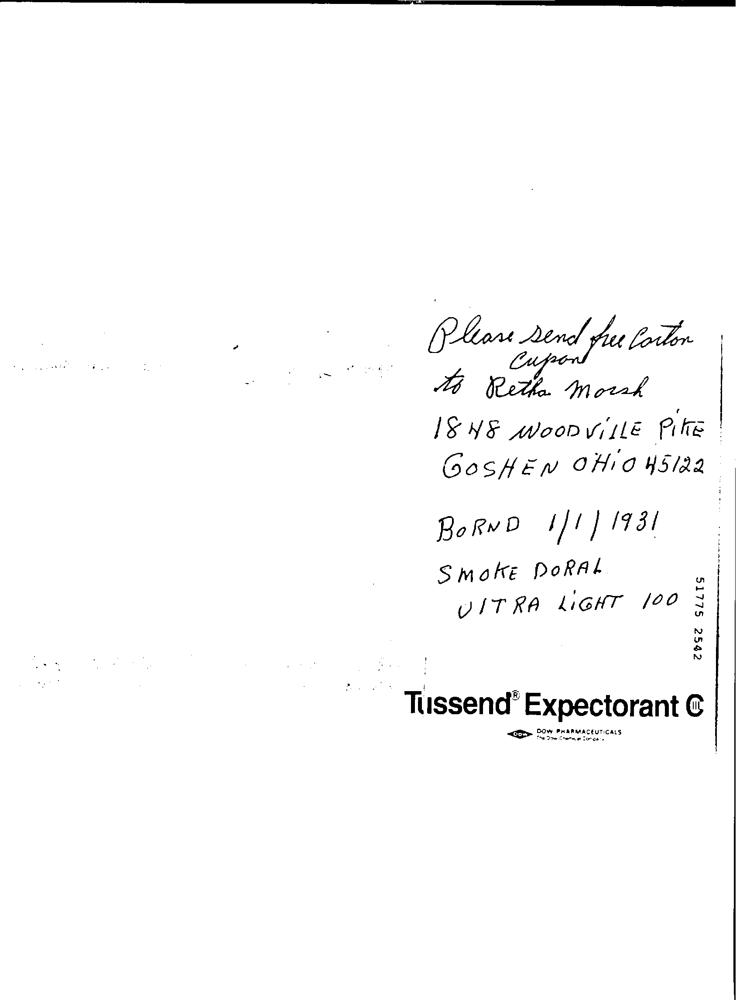 Please send free Carton
Cupon
to Retha Marsh
1848 WOODVILLE PIKE
GOSHEN OHIO 45122
BORND 1/1/1931
SMOKE DORAL
UlTRA LiGHT 100
51775 2542
Tussend® Expectorant CIII
DOW DOW PHARMACEUTICALS
The Dow Chemical Company